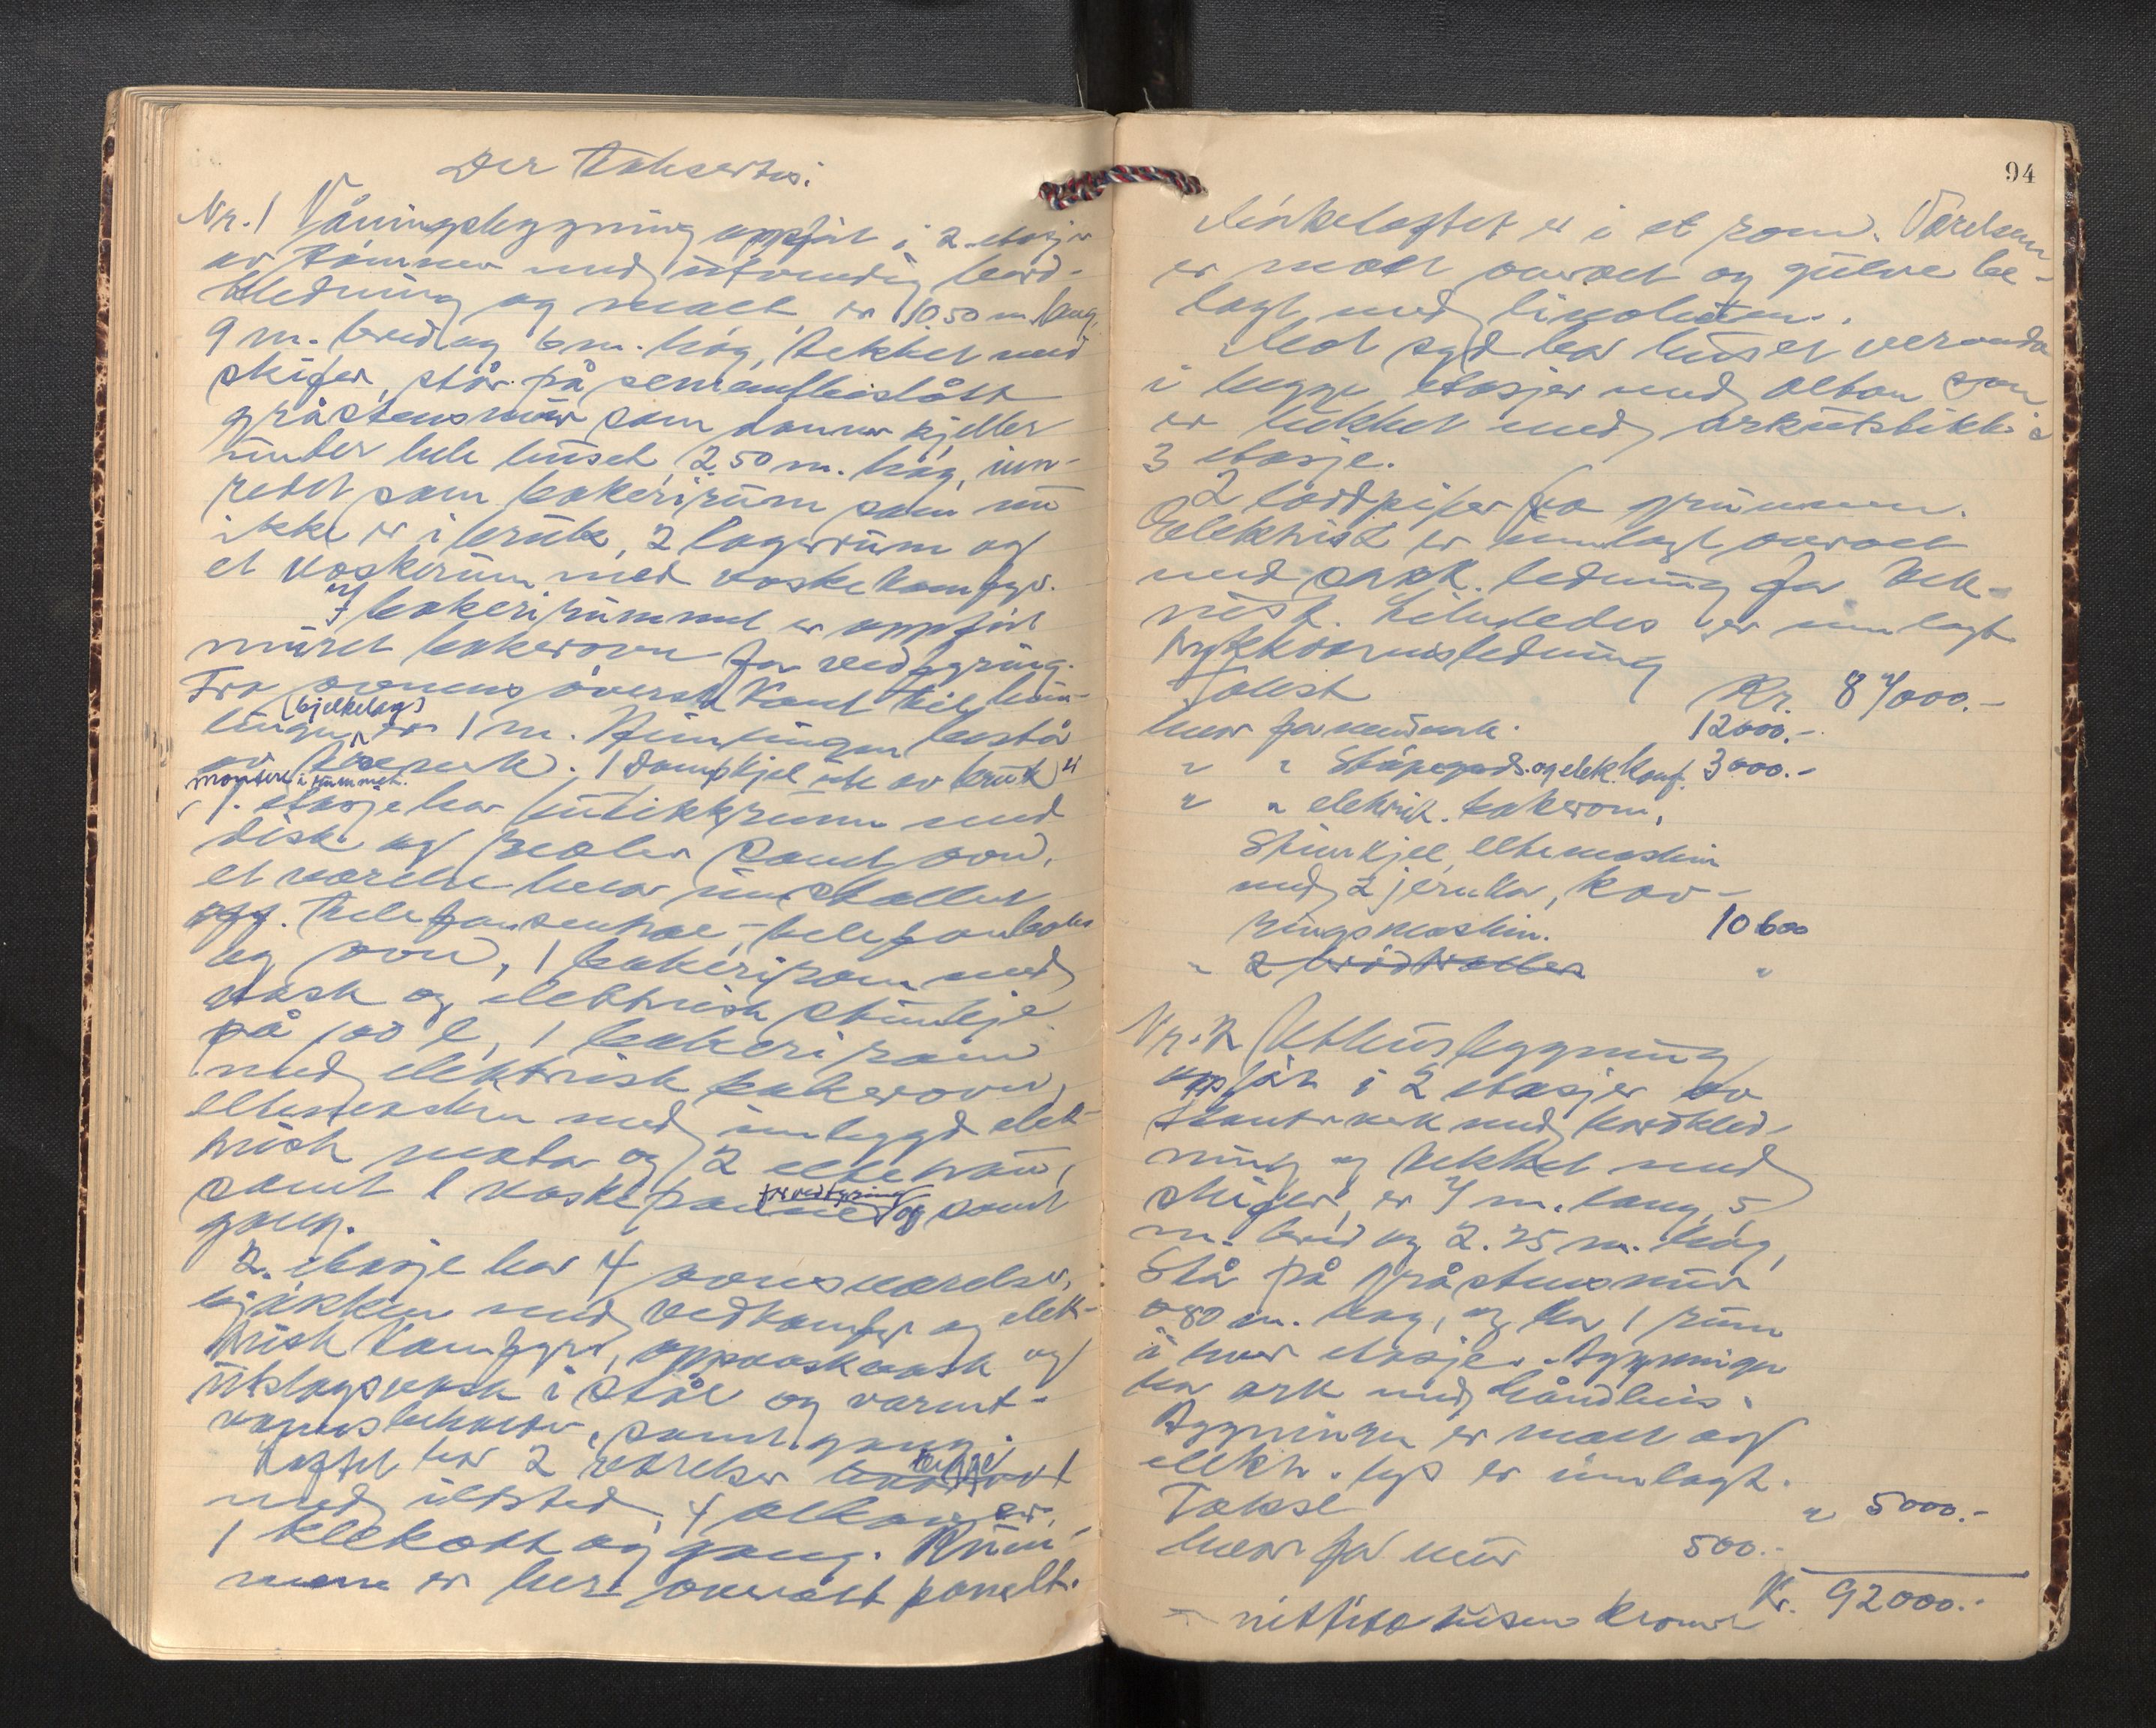 Der takseres:
Nr. 1 Våningsbygning oppført i 2 etasjer
av tømmer med utvendig bord-
kledning og malt er 10.50 m lang,
9 m. bred og 6 m. høg, tekket med
skifer, står på sementbeslått
gråstensmur som danner kjeller
under hele huset, 2.50 m. høg, inn-
redet som bakerirum som nu
ikke er i bruk, 2 lagerrum og
et vaskerum med vaskekomfyr.
I bakerirummet er oppført
muret bakerovn for vedfyring.
Fra ovnens øverste kant til him-
(bjelkelag)
lingen er 1 m. Himlingen består
av treverk. 1 dampkjel ute av bruk er
montert i rummet.
1. etasje har butikkrum med
disk og reoler samt ovn,
et værelse hvor installert
off. telefonsentral, telefonboks
og ovn, 1 bakerirom med
vask og elektrisk stimkjel
på 100 l, 1 bakerirom
med elektrisk bakerovn,
eltemaskin med innbygd elek-
trisk motor og 2 eltetrau,
samt 1 vaskepanne og samt
for vedfyring
gang.
2. etasje har 4 ovnsværelser,
kjøkken med vedkomfyr og elek-
trisk komfyr, oppvaskvask og
utslagsvask i stål og varmt-
vannsbeholder, samt gang.
Loftet har 2 værelser begge
med ildsted, 4 alkover,
1 klekott og gang. Rum-
mene er her overalt panelt.
94
Hinkeloftet er i et rom. Værelsene
er malt overalt og gulve be-
lagt med linoleum.
Mot syd har huset veranda
i begge etasjer med altan som
er tekket med arkutstikk i
3 etasje.
2 loddpiper fra grunnen.
Elektrisk er innlagt overalt
med særk. ledning for tek-
nisk. Likeledes er innlagt
trykkvannsledning
Takst Kr. 87000.-
hvorav for murverk. 12000.-
" " Støpegods. og elek. komf. 3000.-
" " elektrisk. bakerovn,
Stimkjel, eltemaskin
med 2 jernkar, kav-
ringsmaskin. 10600
" 2 brødtraller "
Nr. 2 Uthusbygning
oppført i 2 etasjer av
stavverk med bordkled-
ning og tekket med
skifer, er 7 m. lang, 5
m. bred og 2.75 m. høg,
Står på gråstensmur
0.80 m. høg, og har 1 rum
i hver etasje. Bygningen
har ark med håndheis.
Bygningen er malt og
elektr. lys er innlagt.
Takst " 5000.-
hvorav for mur 500.-
Kr. 92000.-
– nittito tusen kroner